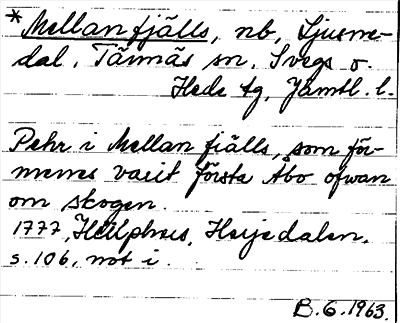 * Mellanfjälls, nb, Ljusne-
dal, Tännäs sn, Svegs o.
Hede tg, Jämtl. l.
Pehr i Mellan fjälls, som för-
menes varit första Åbo ofwan
om skogen.
1777, Hülphers, Herjedalen,
s. 106, not i.
B. G. 1963.